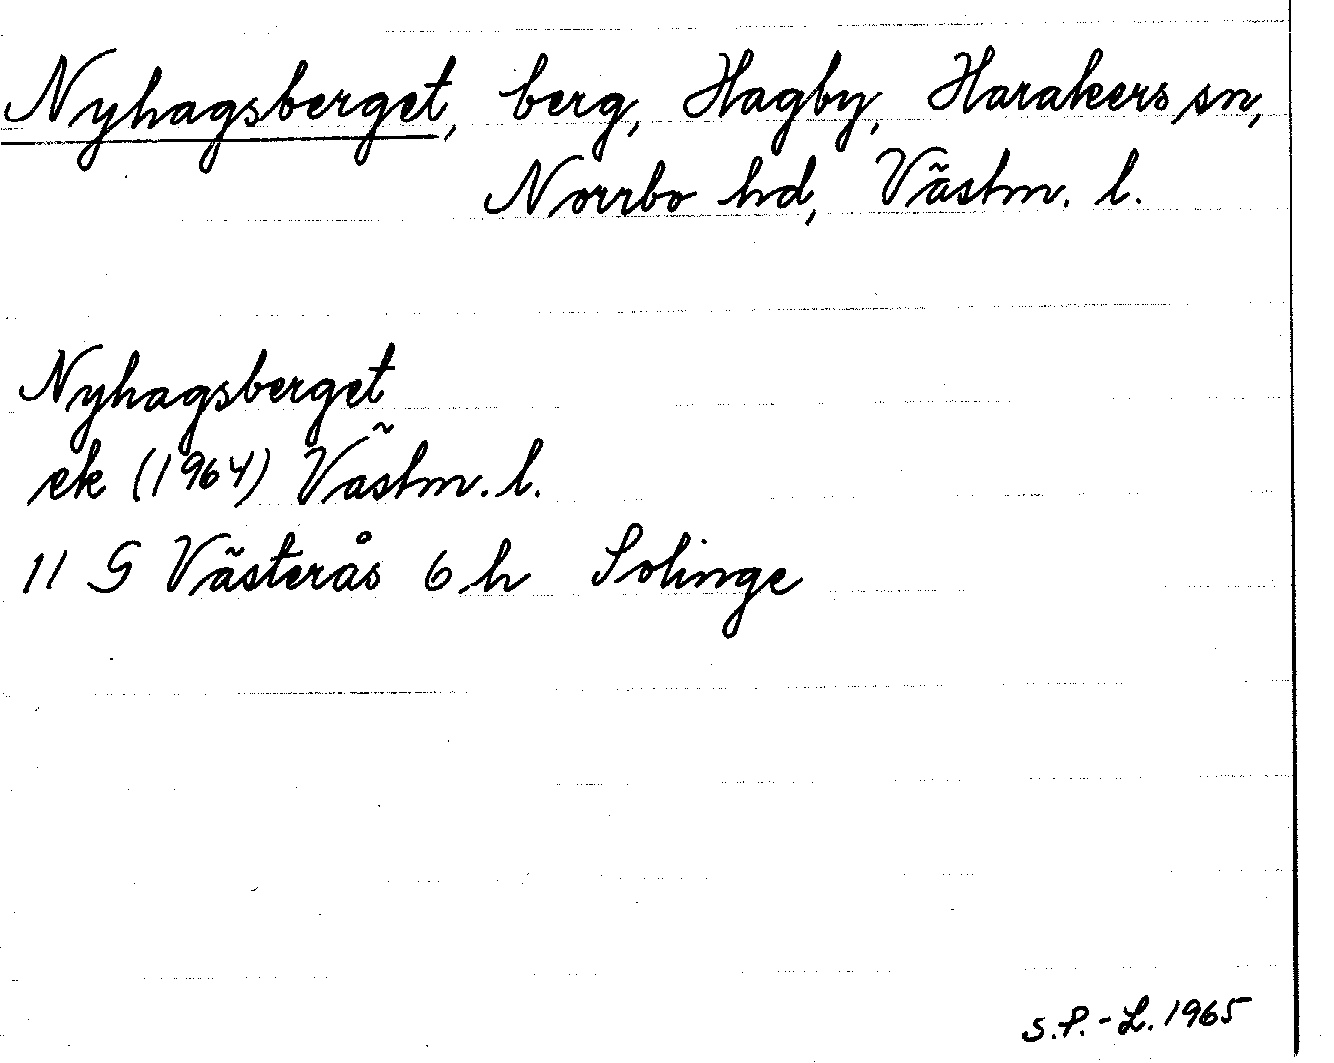 Nyhagsberget, berg, Hagby, Harakers sn,
Norrbo hd, Västm. l.
Nyhagsberget
ek (1964) Västm. l.
11 G Västerås 6 h Solinge
S.P.-L. 1965